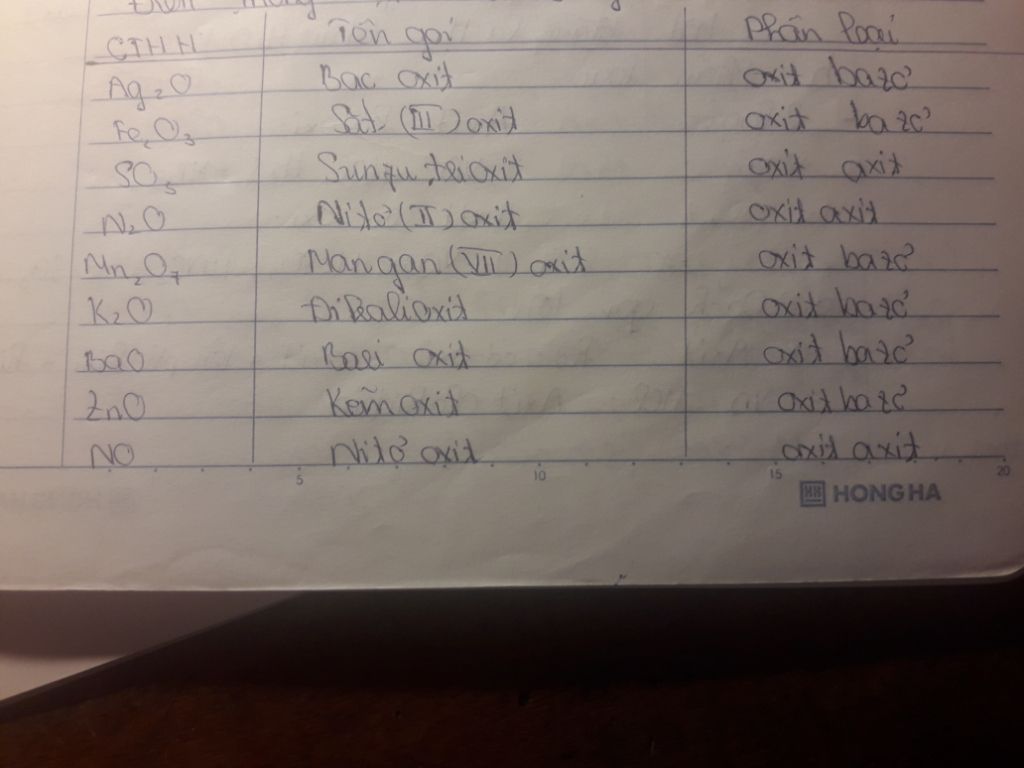 CTHH Tên gọi Phân loại
Ag2O Bạc oxit oxit bazơ
Fe2O3 Sắt (III) oxit oxit bazơ
SO3 Sunfu trioxit oxit axit
N2O Nitơ (II) oxit oxit axit
Mn2O7 Mangan (VII) oxit oxit bazơ
K2O Đikalioxit oxit bazơ
BaO Bari oxit oxit bazơ
ZnO Kẽm oxit oxit bazơ
NO Nitơ oxit oxit axit
5 10 15 20
HH HONG HA